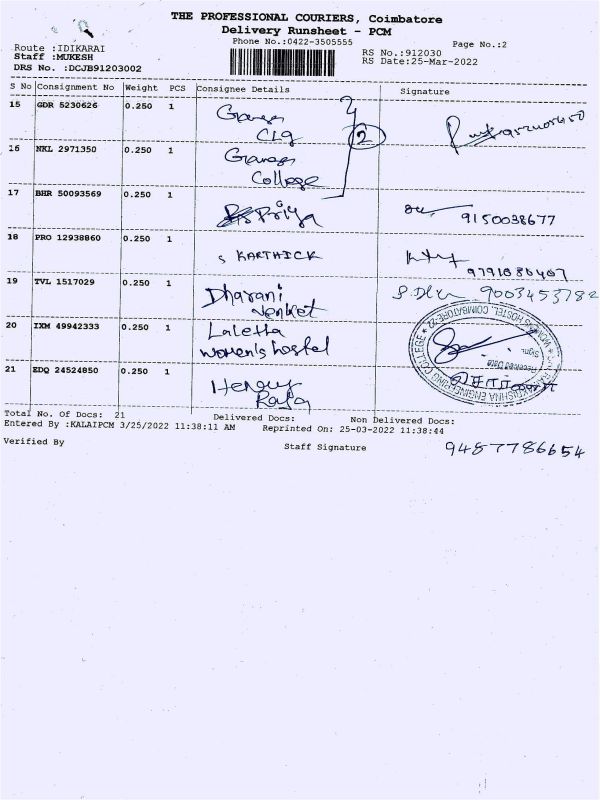 THE PROFESSIONAL COURIERS, Coimbatore
Delivery Runsheet - PCM
Phone No.:0422-3505555
Page No.:2
Route :IDIKARAI
Staff :MUKESH
DRS No. :DCJB91203002
RS No.:912030
RS Date:25-Mar-2022
S No Consignment No Weight PCS Consignee Details Signature
15 GDR 5230626 0.250 1
Clg
2
16 NKL 2971350 0.250 1
College
17 BHR 50093569 0.250 1 Priya 9150038677
18 PRO 12938860 0.250 1 S KARTHICK
19 TVL 1517029 0.250 1 Dharani 9003453782
Venket
20 IXM 49942333 0.250 1
Women's hostel
21 EDQ 24524850 0.250 1
Total No. Of Docs: 21 Delivered Docs: Non Delivered Docs:
Entered By :KALAIPCM 3/25/2022 11:38:11 AM Reprinted On: 25-03-2022 11:38:44
Verified By Staff Signature 9487786654